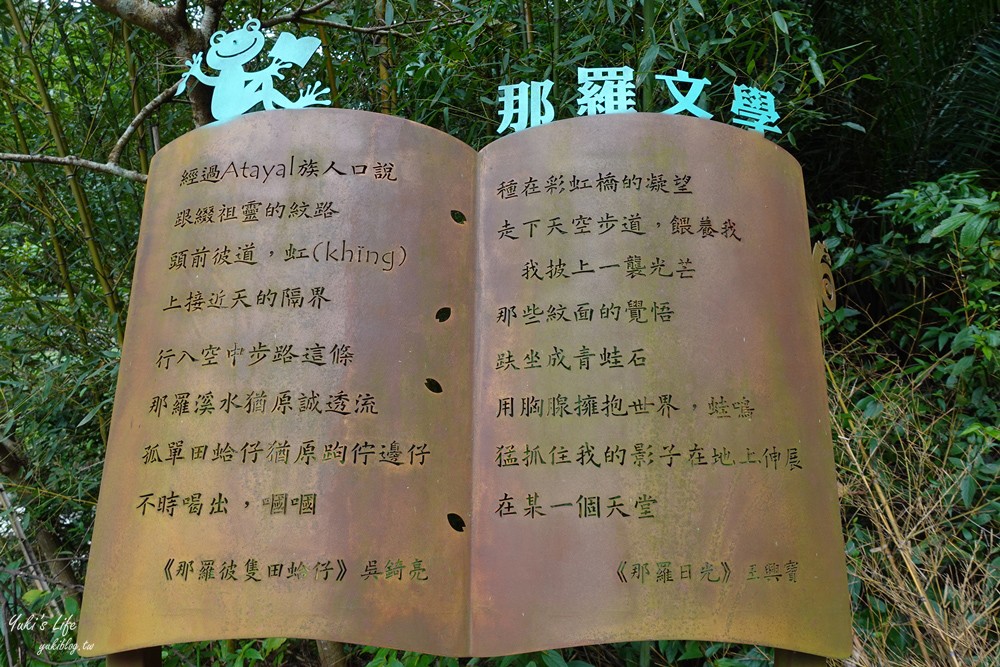 那羅文學
經過Atayal族人口說
跟綴祖靈的紋路
頭前彼道，虹(khīng)
上接近天的隔界
行入空中步路這條
那羅溪水猶原誠透流
孤單田蛤仔猶原跔佇邊仔
不時喝出，嘓嘓
《那羅彼隻田蛤仔》吳錡亮
種在彩虹橋的凝望
走下天空步道，餵養我
我披上一襲光芒
那些紋面的覺悟
趺坐成青蛙石
用胸腺擁抱世界，蛙鳴
猛抓住我的影子在地上伸展
在某一個天堂
《那羅日光》王興寶
Yuki's Life
yukiblog.tw